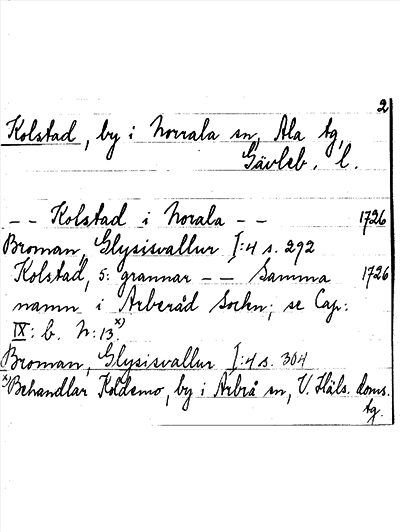 2
Kolstad, by i Norrala sn, Ala tg,
Gävleb. l.
-- Kolstad i Norala -- 1726
Broman, Glysisvallur I:4 s. 292
Kolstad, 5: grannar -- Samma 1726
namn i Arberåd Sockn; se Cap:
IX: b. N:13 x)
Broman, Glysisvallur I:4 s. 304
x) Behandlar Koldemo, by i Arbrå sn, V. Häls. doms.
tg.